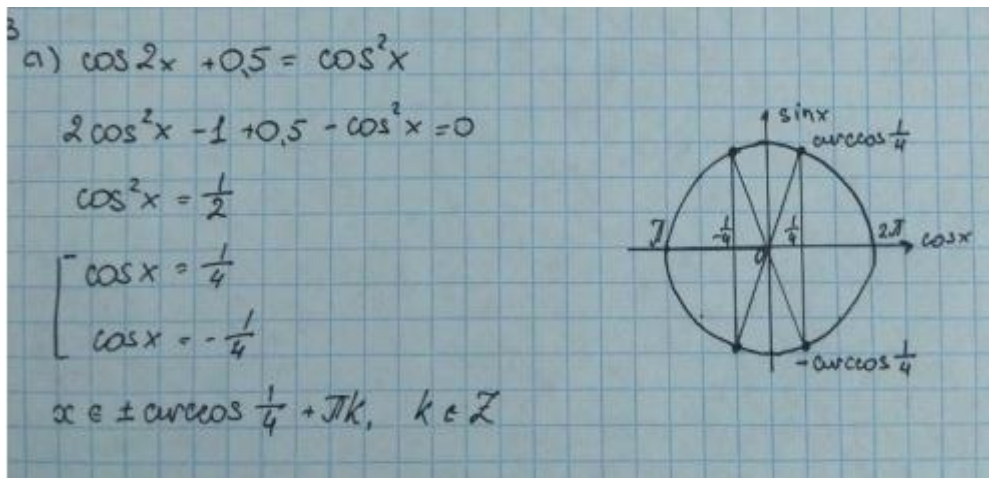 3
а) cos2x +0,5 = cos²x
2cos²x -1 +0,5 - cos²x =0
cos²x = 1/2
cosx = 1/4
cosx = -1/4
x ∈ ± arccos 1/4 + πk, k ∈ Z
sinx
arccos 1/4
π
-1/4
1/4
2π
cosx
0
-arccos 1/4